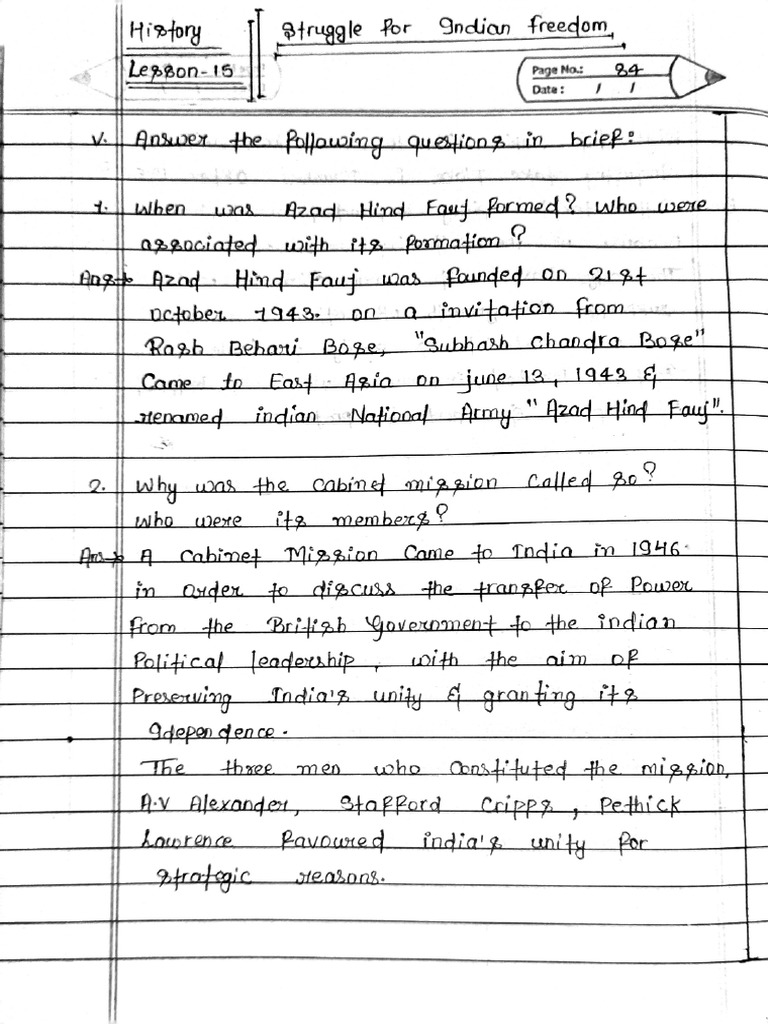 History
Struggle for Indian freedom
Lesson-15
Page No.: 84
Date: / /
V. Answer the following questions in brief:
1. When was Azad Hind Fauj formed? Who were
associated with its formation?
Ans→ Azad Hind Fauj was founded on 21st
October 1943. on a invitation from
Rash Behari Bose, "Subhash Chandra Bose"
Came to East Asia on june 13, 1943 &
renamed indian National Army "Azad Hind Fauj".
2. Why was the cabinet mission called so?
who were its members?
Ans→ A Cabinet Mission Came to India in 1946.
in order to discuss the transfer of Power
from the British Government to the indian
Political leadership, with the aim of
Preserving India's unity & granting its
Idependence.
The three men who constituted the mission,
A.V Alexander, Stafford Cripps, Pethick
Lawrence favoured india's unity for
strategic reasons.